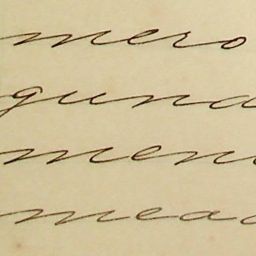 mero
guna
men
mead